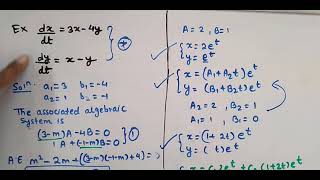 Ex dx/dt = 3x-4y
dy/dt = x-y
Soln. a₁=3 b₁=-4
a₂=1 b₂=-1
The associated algebraic
system is
(3-m)A-4B=0
1A+(-1-m)B=0 } ①
A E m²-2m+(3-m)(-1-m)+4)=
A=2, B=1
x=2eᵗ
y=eᵗ
x=(A₁+A₂t)eᵗ
y=(B₁+B₂t)eᵗ
A₂=2, B₂=1
A₁=1, B₁=0
x=(1+2t)eᵗ
y=( t)eᵗ